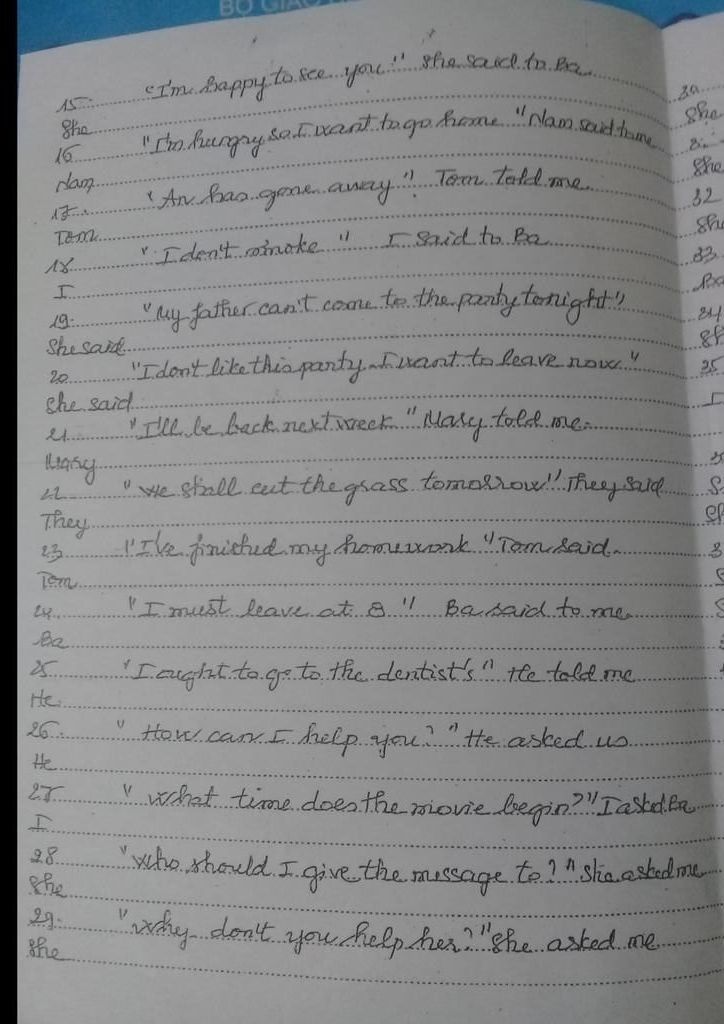 BỘ GIÁO
15. "I'm happy to see you" she said to Ba
She
16 "I'm hungry so I want to go home "Nam said to me
Nam
17. "An has gone away" Tom told me
Tom
18 "I don't smoke" I said to Ba
I
19. "My father can't come to the party tonight"
She said
20 "I don't like this party. I want to leave now"
She said
21 "I'll be back next week" Mary told me.
Mary
22 "We shall cut the grass tomorrow" They said
They
23 "I've finished my homework "Tom said.
Tom
24. "I must leave at 8" Ba said to me
Ba
25 "I ought to go to the dentist's" He told me
He
26. "How can I help you?" He asked us
He
27 "What time does the movie begin?" I asked Ba
I
28 "who should I give the message to?" She asked me
She
29. "Why don't you help her?" She asked me
She
She
She
32
She
33
Ba
34
35
I